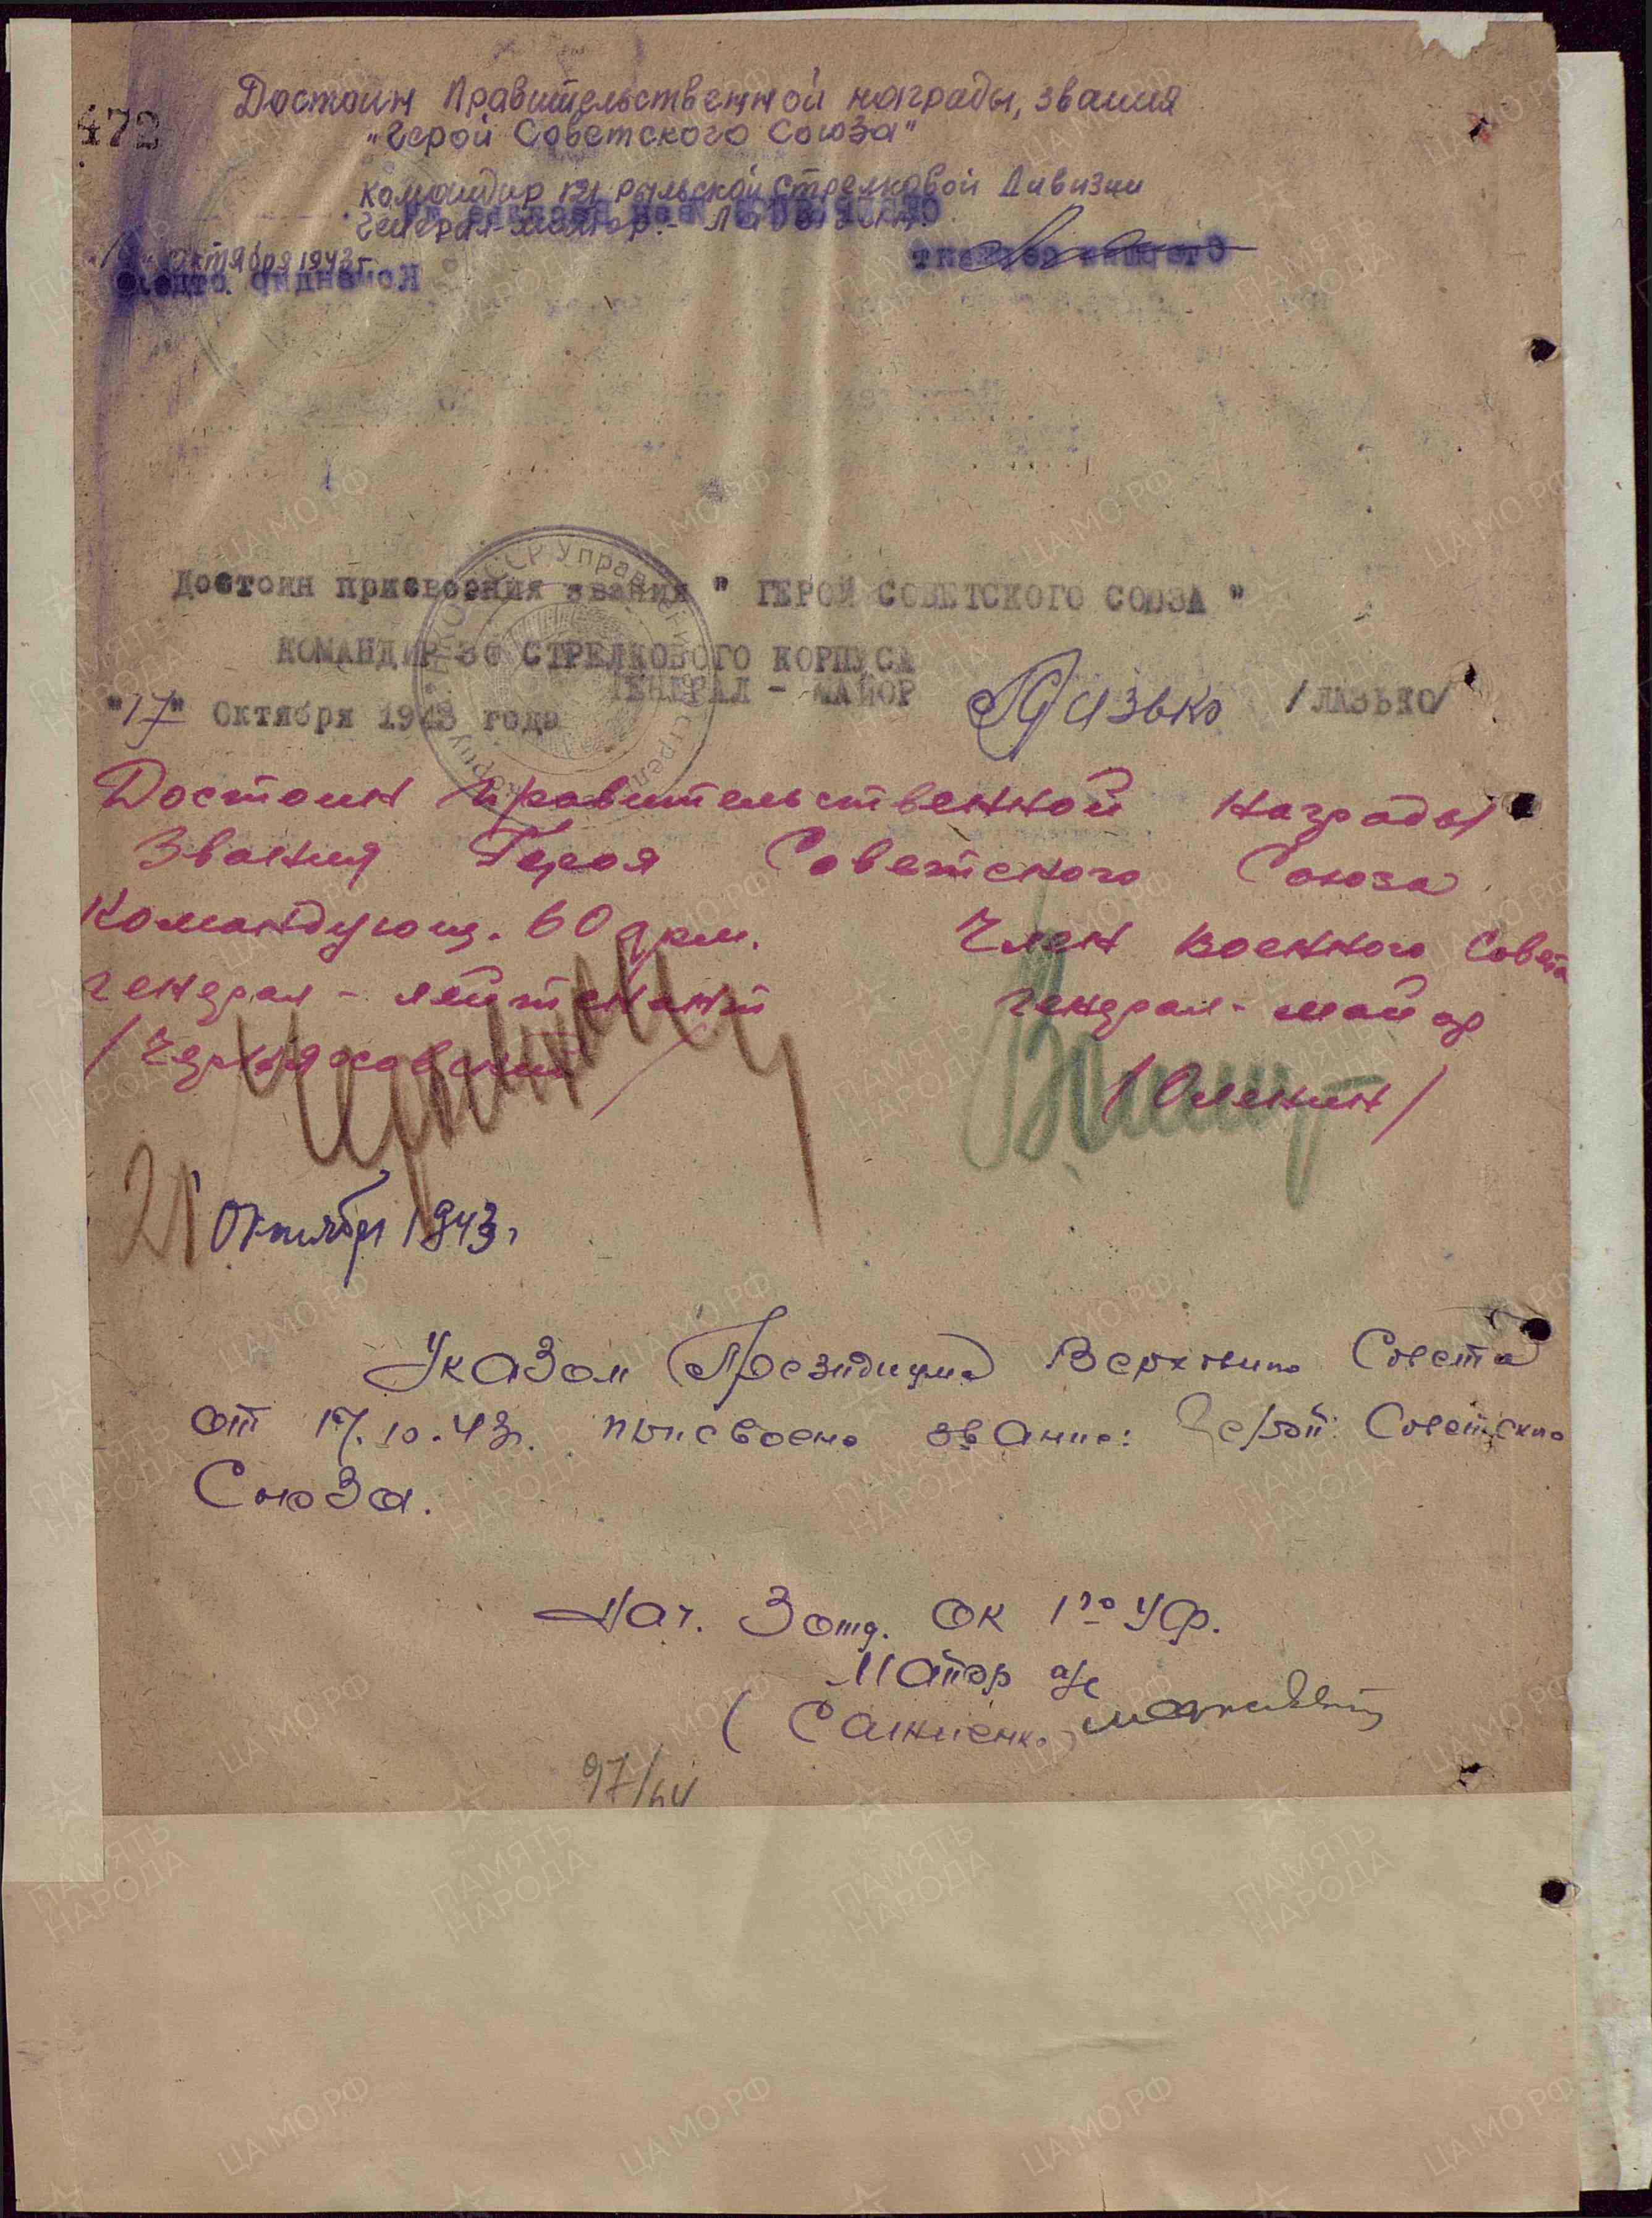 472
Достоин Правительственной награды, звания
"Герой Советского Союза"
Командир 121 рыльской Стрелковой Дивизии
Генерал-майор -
Октября 1943 г.
Достоин присвоения звания " ГЕРОЙ СОВЕТСКОГО СОЮЗА "
КОМАНДИР 30 СТРЕЛКОВОГО КОРПУСА
ГЕНЕРАЛ - МАЙОР Лазько /ЛАЗЬКО/
"17" Октября 1943 года
Достоин правительственной награды
Звания Героя Советского Союза
Командующ. 60 арм. Член военного Совета
генерал - лейтенант генерал-майор
/Черняховский/ /Оленин/
21 Октября 1943 г.
Указом Президиума Верховного Совета
от 17.10.43г. присвоено звание: Герой Советского
Союза.
Нач. 3 отд. ОК 1го УФ.
Майор а/с
97/64
ПАМЯТЬ НАРОДА
ЦА МО РФ